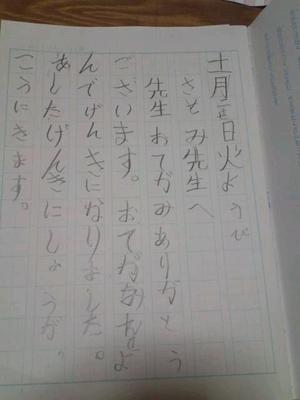 十一月三日火ようび
さとみ先生へ
先生おてがみありがとう
ございます。おてがみをよ
んでげんきになりました。
あしたげんきにしょうが、
こうにきます。